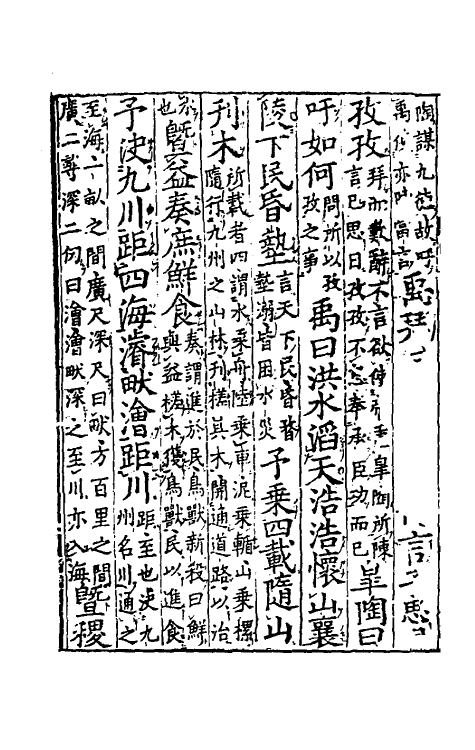 陶謀九德故呼
禹使亦陳當言
禹
言思
孜孜
拜而歎辭不言欲使帝重皋陶所陳
言己思日孜孜不怠奉承臣功而已
皋陶曰
吁如何
問所以孜
孜之事
禹曰洪水滔天浩浩懷山襄
陵下民昏墊
言天下民昏瞀
墊溺皆困水災
予乘四載隨山
刊木
所載者四謂水乘舟陸乘車泥乘輴山乘樏
隨行九州之山林刊槎其木開通道路以治
水
也
暨益奏庶鮮食
奏謂進於民鳥獸新殺曰鮮
與益槎木獲鳥獸民以進食
予決九川距四海濬畎澮距川
距至也決九
州名川通之
至海一畝之間廣尺深尺曰畎方百里之間
廣二尋深二仞曰澮澮畎深之至川亦入海
暨稷